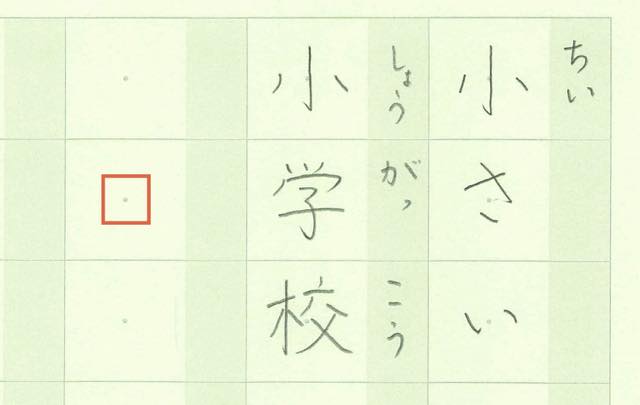 ちい
小さい
しょうがっこう
小学校